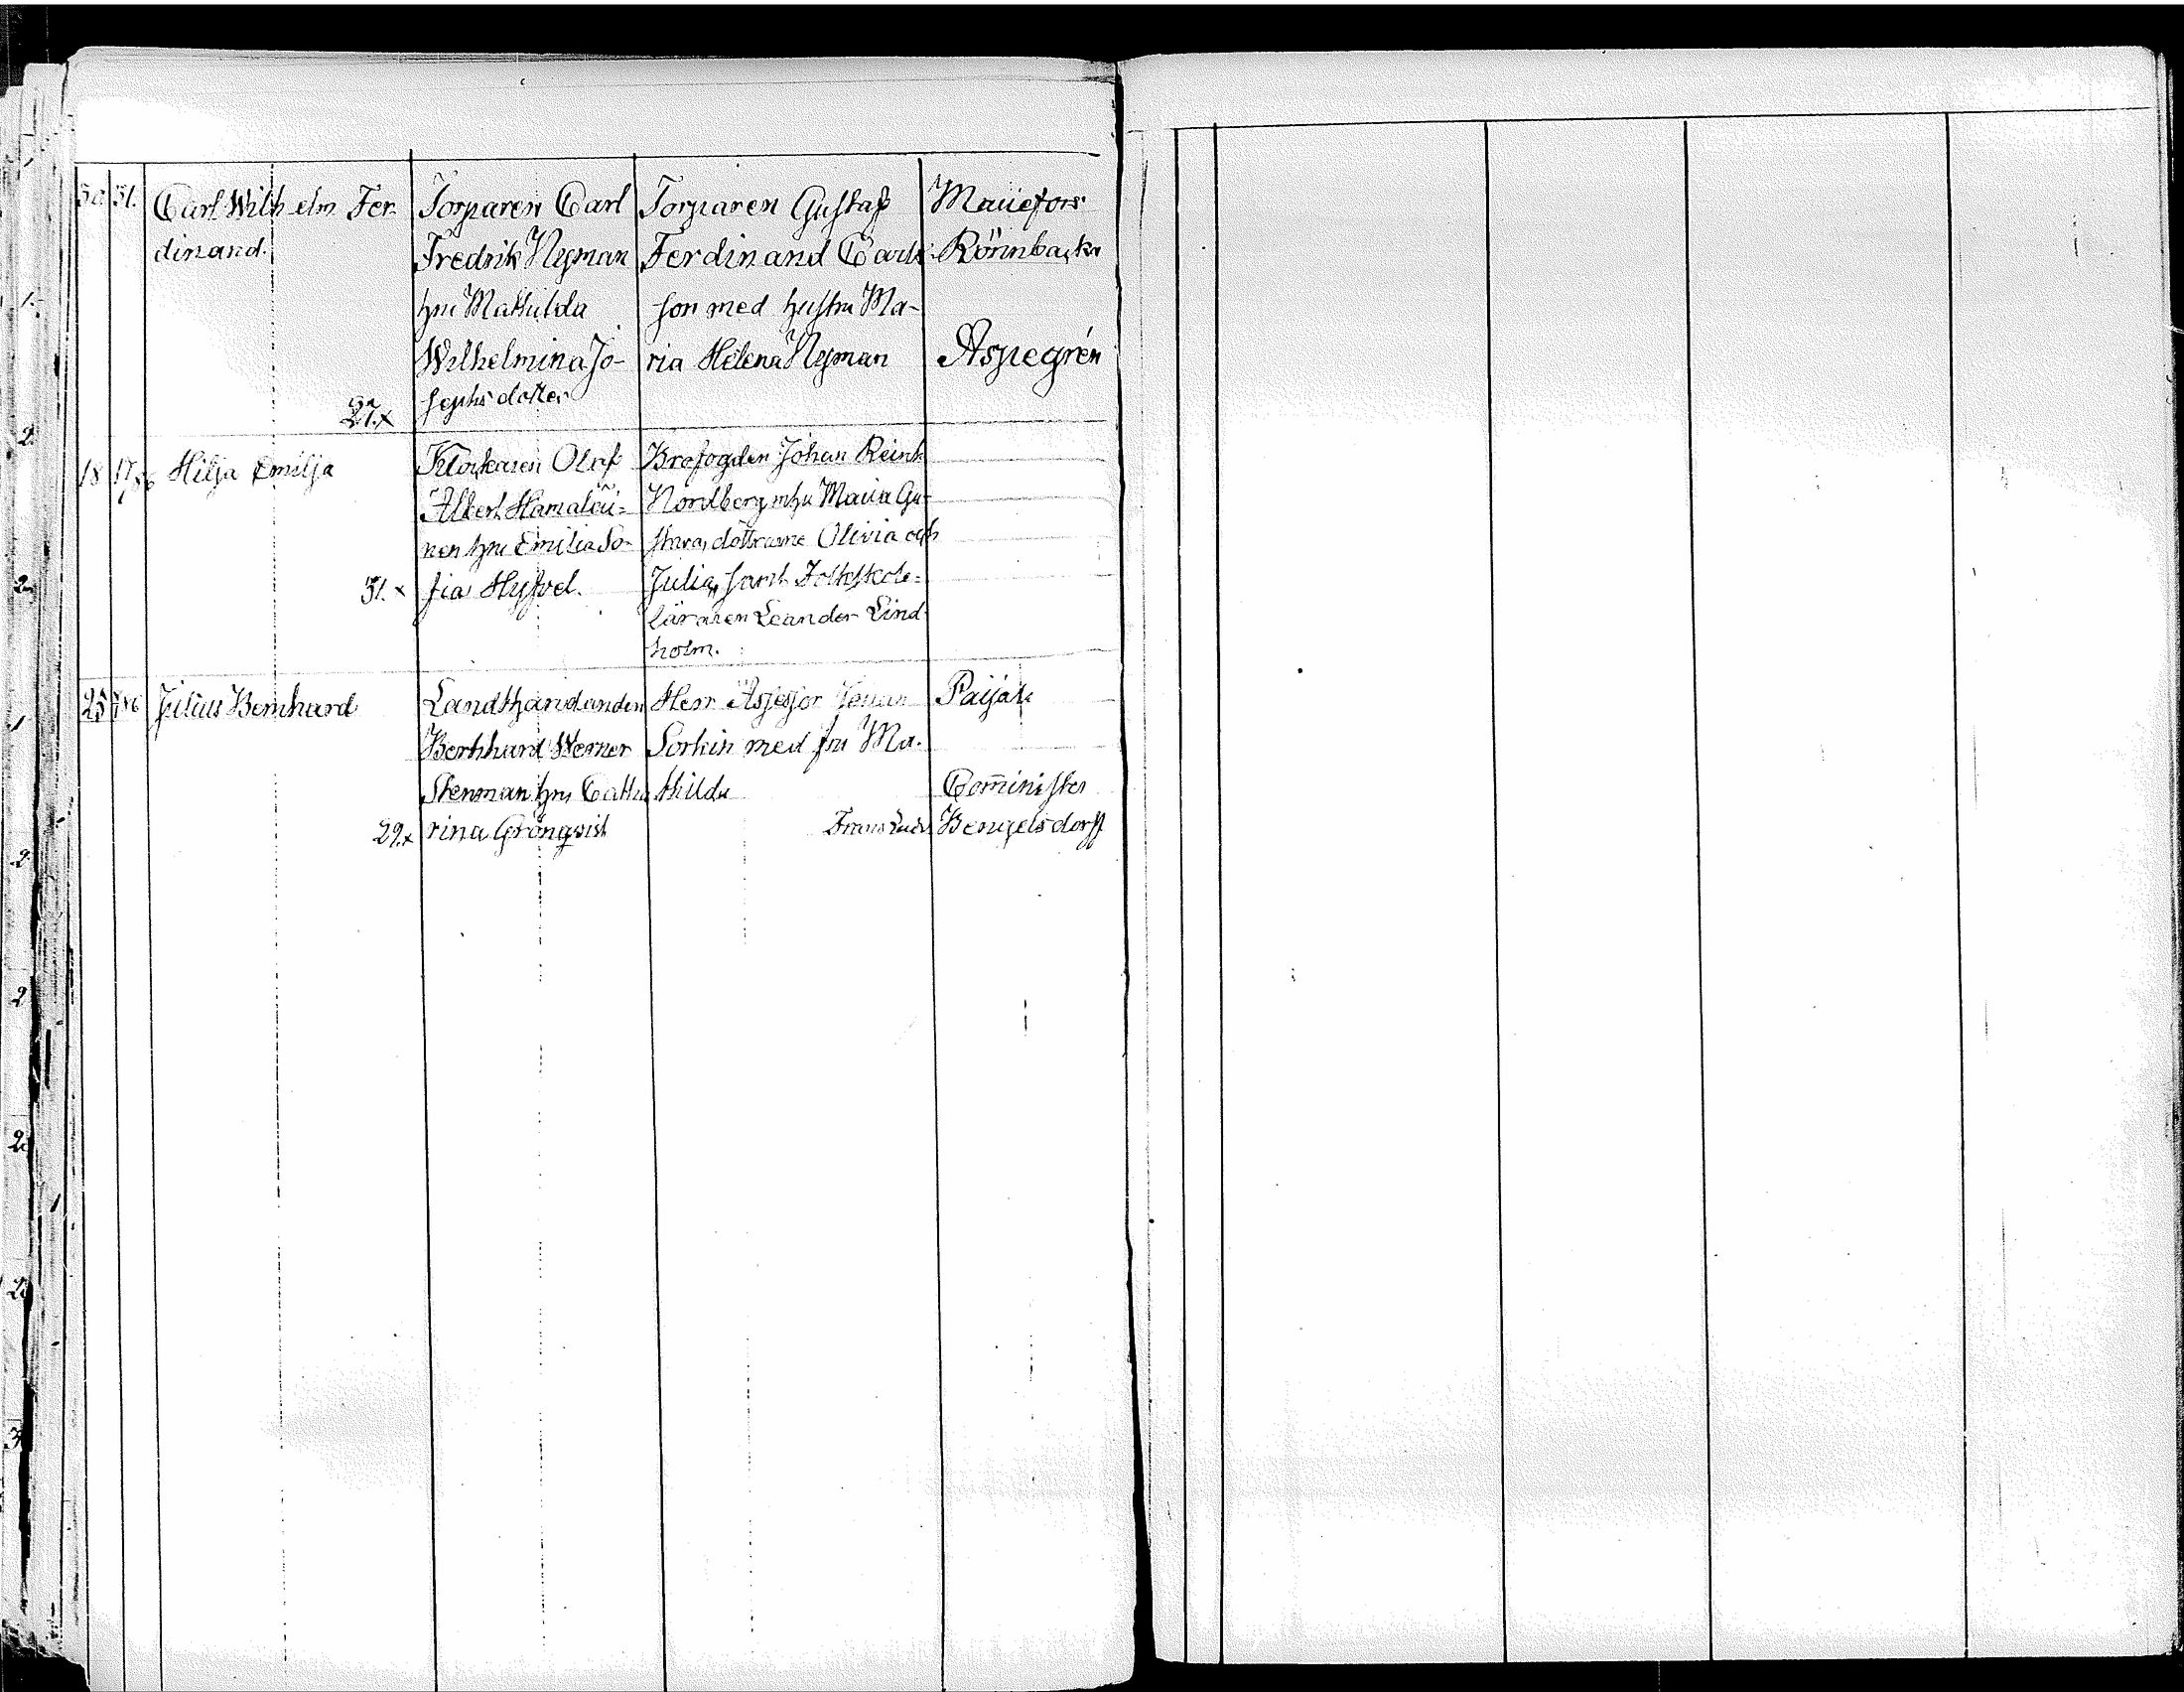 30 31. Carl Wilhelm Fer-
dinand.
Torparen Carl
Fredrik Nyman
hru Mathilda
Wilhelmina Jo-
sephsdotter
27.x
Torparen Gustaf
Ferdinand Carls-
son med hustru Ma-
ria Helena Nyman
Rönnbacka
Aspegrén
18 17/86 Hilja Emilja
Klockaren Olof
Albert Hämäläi-
nen hru Emilia So-
31.x fia Hyfvel.
Brofogden Johan Reinh
Nordberg mhu Maria Gu-
stava, döttrarne Olivia och
Julia, samt Folkskole-
läraren Leander Lind-
holm.
25 Julius Bernhard
Landthandanden
Bernhard Werner
Stenman hru Catha
29.x rina Grönqvist
Herr Assessor Johan
Sorkin med fru Ma-
thilda
Comminister
Frans Ludv. Bengelsdorff